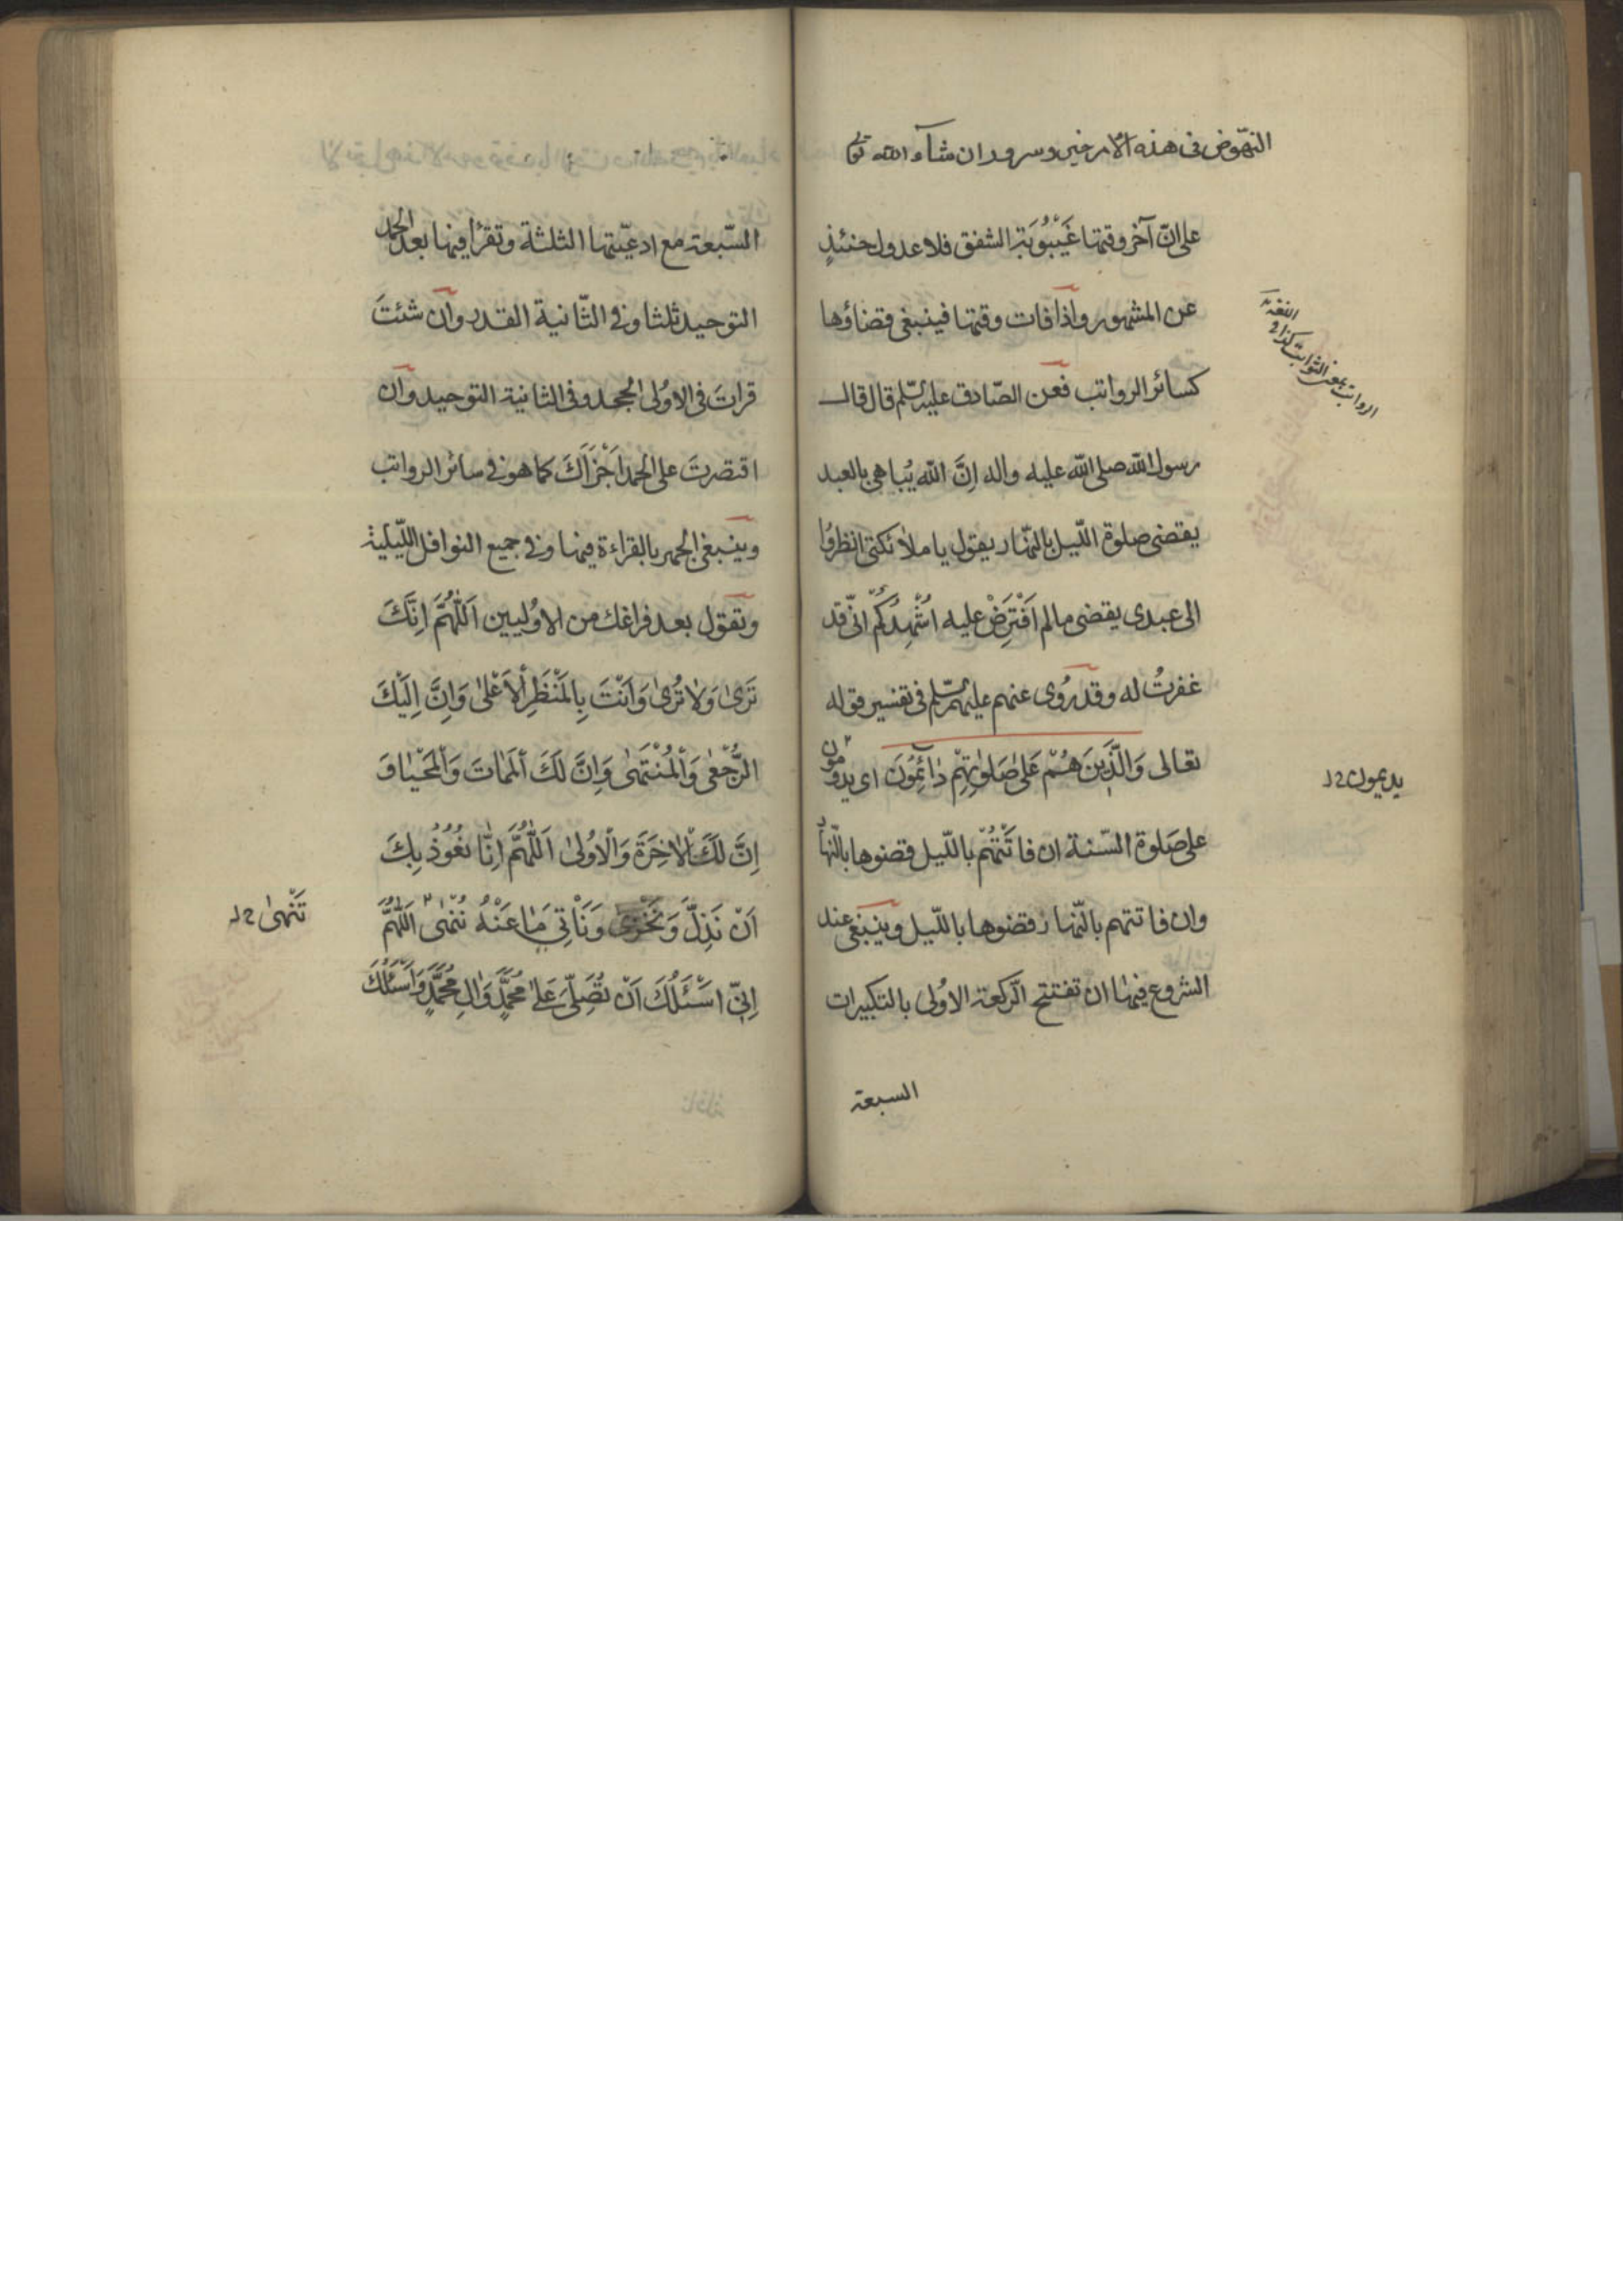 النهوض فى هذه الامر خير وسرور ان شاء الله تعالى
على انّ آخر وقتها غَيْبُوبَة الشفق فلا عدول حنئذٍ
عن المشهور واذا فات وقتها فينبغى قضاؤها
كسائر الرواتب فعن الصّادق عليه السّلم قال قال
رسول الله صلى الله عليه واله اِنَّ الله يُباهى بالعبد
يقضى صلوة اللّيل بالنّهار يقول يا ملائكتى انظرُوا
الى عبدى يقضى مالم اَفْتَرِضْ عليه اُشْهِدُكُمْ انّى قد
غفرتُ له وقد رُوى عنهم عليهم السّلم فى تفسير قوله
تعالى وَالَّذِينَ هُمْ عَلىٰ صَلوٰتِهِمْ دٰائِمُونَ اى يدومون
على صَلوة السّنة ان فاتَتْهُمْ باللّيل قضوها بالنّهار
وان فاتتهم بالنّهار قضوها باللّيل وينبغى عند
الشروع فيها ان تفتتح الركعة الاُولى بالتكبيرات
السبعة
الرواتب بمعنى الثوابت كذا فى
اللغة
يديمون
السّبعة مع ادعيّتها الثلثة وتقرأ فيها بعد الحمد
التوحيد ثلثا وفى الثّانية القدر وان شئتَ
قراتَ فى الاولى الجحد وفى الثانية التوحيد وان
اقتصرتَ على الحمد اَجْزَاَكَ كما هو فى سائر الرواتب
وينبغى الجهر بالقراءة فيها وفى جميع النوافل اللّيلية
وتقول بعد فراغك من الاوُليين اَللّٰهُمَّ اِنَّكَ
تَرىٰ وَلاٰ تُرىٰ وَاَنْتَ بِالْمَنْظَرِ الْاَعْلىٰ وَاِنَّ اِلَيْكَ
الرُّجْعىٰ وَالْمُنْتَهىٰ وَاِنَّ لَكَ الْمَمٰاتَ وَالْمَحْيٰا وَ
اِنَّ لَكَ الْاٰخِرَةَ وَالْاُولىٰ اَللّٰهُمَّ اِنّٰا نَعُوذُ بِكَ
اَنْ نَذِلَّ وَنَخْزىٰ وَنَأتِىَ مٰا عَنْهُ نُنْهىٰ اَللّٰهُمَّ
اِنِّى اَسْئَلُكَ اَنْ تُصَلِّىَ عَلىٰ مُحَمَّدٍ وَالِ مُحَمَّدٍ وَاَسْئَلُكَ
تَنْهىٰ